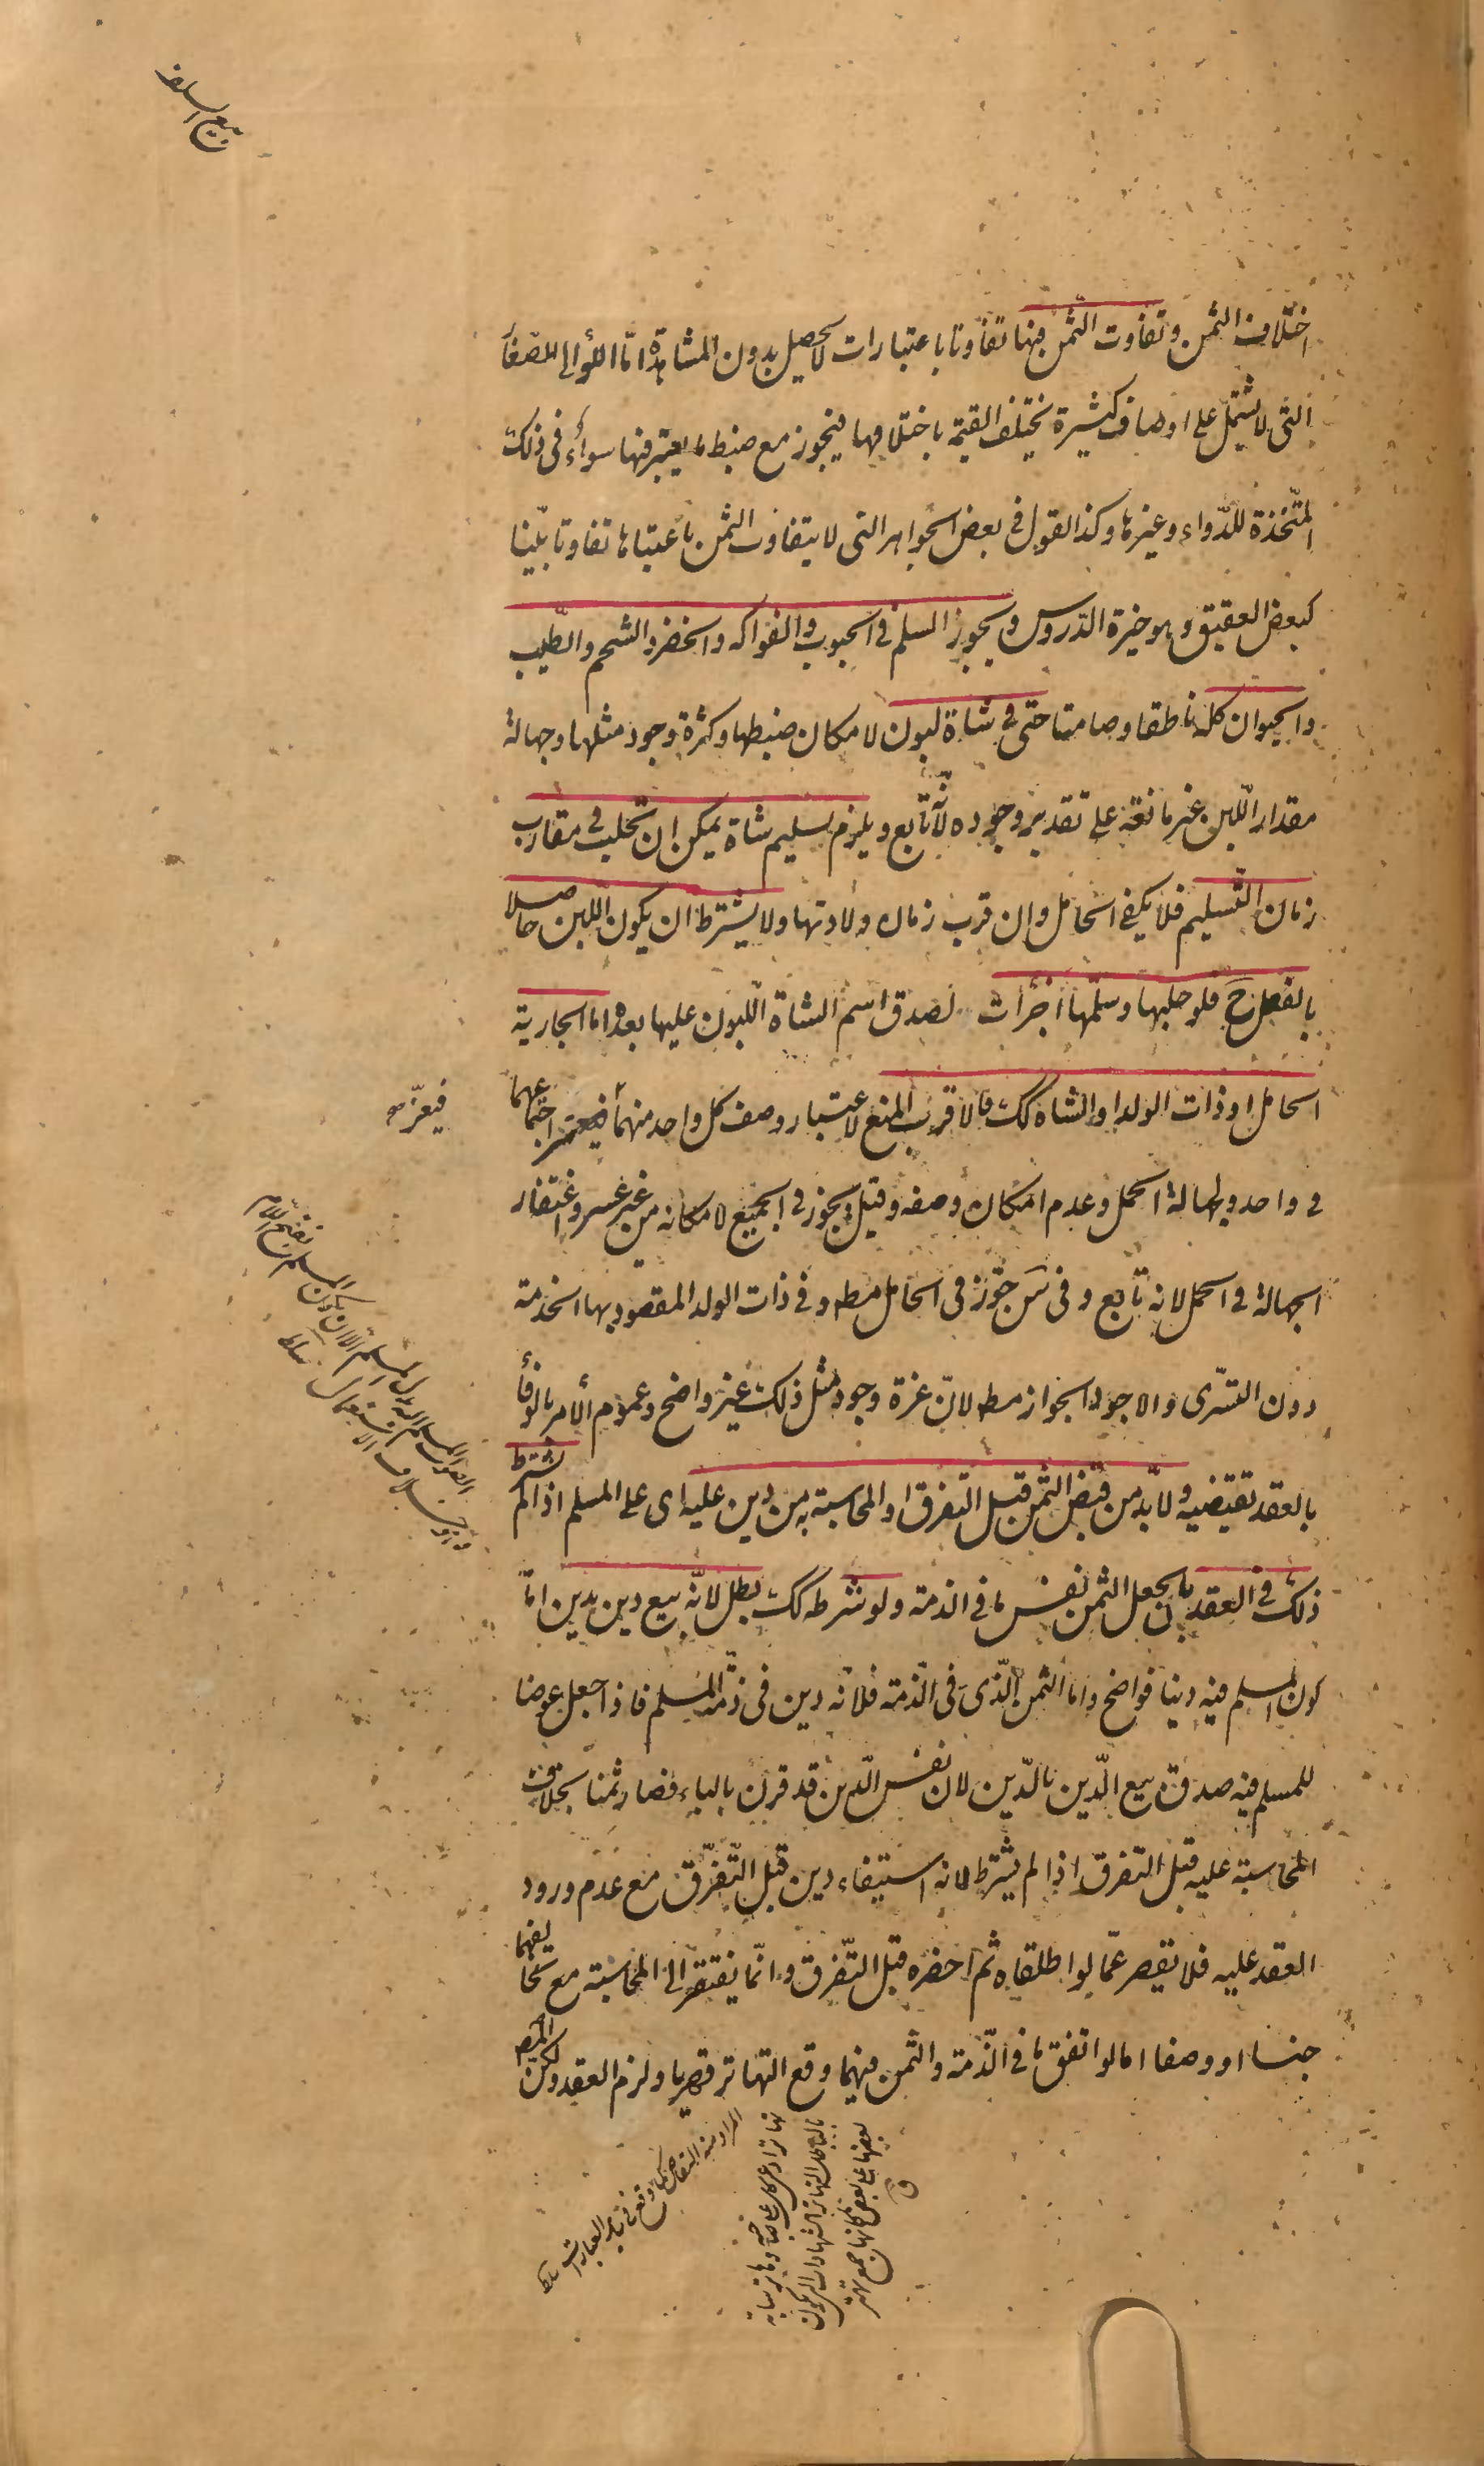 بيع السلف
اختلاف الثمن وتفاوت الثمن فيها تفاوتا باعتبارات لا يحصل بدون المشاهدة امّا اللؤالى الصغار
التى لا تشتمل على اوصاف كثيرة تختلف القيمة باختلافها فيجوز مع ضبط ما يعتبر فيها سواء فى ذلك
المتّخذة للدّواء وغيرها وكذا القول فى بعض الجواهر التى لا يتفاوت الثمن باعتبارها تفاوتا بيّنا
كبعض العقيق وهو خيرة الدّروس ويجوز السلم فى الحبوب والفواكه والخضر والشحم والطّيب
والحيوان كله ناطقا وصامتا حتى فى شاة لبون لامكان ضبطها وكثرة وجود مثلها وجهالة
مقدار اللّبن غير مانعة على تقدير وجوده لانّه تابع ويلزم تسليم شاة يمكن ان تحلب فى مقارب
زمان التّسليم فلا يكفى الحامل وان قرب زمان ولادتها ولا يشترط ان يكون اللّبن حاصلا
بالفعل ح فلو حلبها وسلّمها اجزأت لصدق اسم الشاة اللّبون عليها بعده اما الجارية
الحامل او ذات الولد او الشاة كك فالاقرب المنع لاعتبار وصف كل واحد منهما فيعزّ اجتماعهما
فيعزّ
فى واحد ولجهالة الحمل وعدم امكان وصفه وقيل يجوز فى الجميع لامكانه من غير عسر واغتفار
الجهالة فى الحمل لانه تابع وفى س جوّز فى الحامل مط وفى ذات الولد المقصود بها الخدمة
دون التسّرى والاجود الجواز مط لانّ عزة وجود مثل ذلك غير واضح وعموم الأمر بالوفاء
بالعقد تقتضيه ولا بدّ من قبض الثمن قبل التفرق او المحاسبة به من دين عليه اى على المسلم اذا لم يشترط
ذلك فى العقد بان يجعل الثمن نفس ما فى الذمة ولو شرطه كك بطل لانّه بيع دين بدين امّا
كون المسلم فيه دينا فواضح واما الثمن الّذى فى الذّمة فلانّه دين فى ذمّة المسلم فاذا جعل عوضا
للمسلم فيه صدق بيع الدّين بالدّين لان نفس الدّين قد قرن بالباء فصار ثمنا بخلاف
المحاسبة عليه قبل التفرق اذا لم يشترط لانه استيفاء دين قبل التّفرّق مع عدم ورود
العقد عليه فلا يقصر عمّا لو اطلقاه ثم احضره قبل التّفرق وانّما يفتقر الى المحاسبة مع تخالفهما
جنسا او وصفا اما لو اتفق ما فى الذّمة والثمن فيهما وقع التهاتر قهريا ولزم العقد ولكن المص
المراد منه التقاص كما وقع فى بعض العبارات